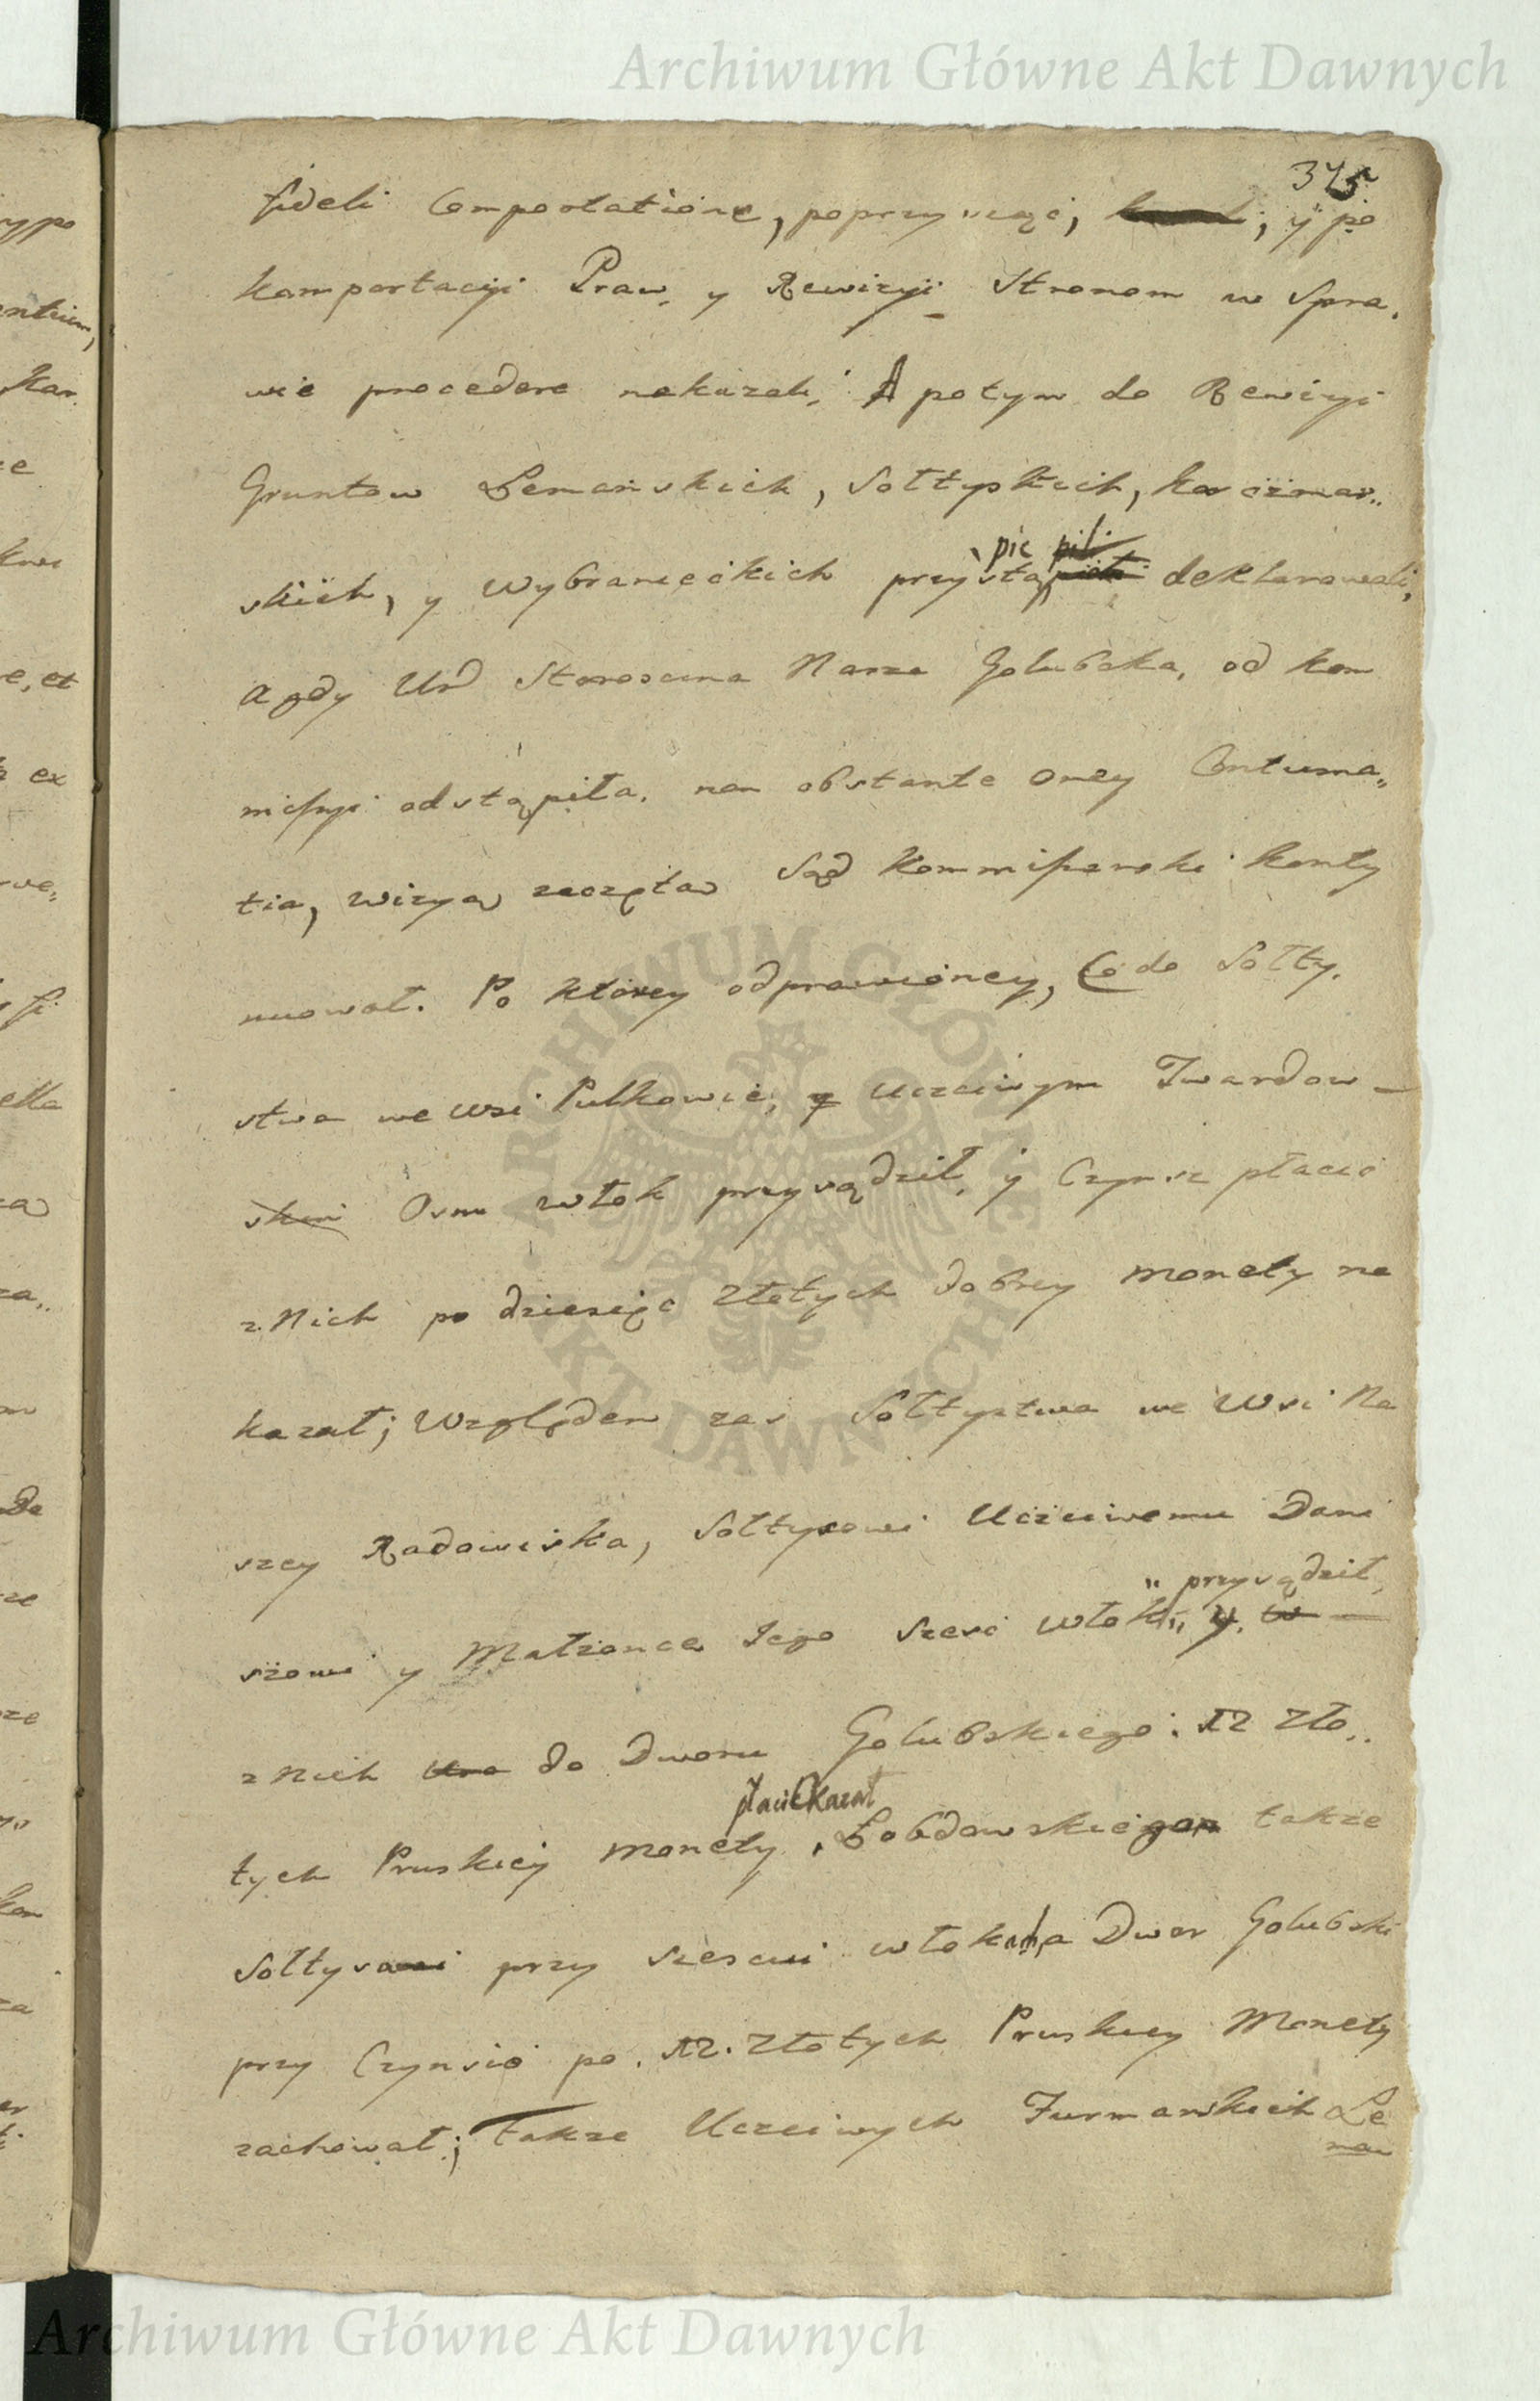 Archiwum Główne Akt Dawnych
375
fideli Comportatione, poprzysiąc, y po
komportacyi Praw, y Rewizyi Stronom w Spra,
wie procedere nakazali; A potym do Rewizyi
Gruntow Lemańskich, Sołtyskich, karczmar„
skich, y Wybranieckich przystąpić deklarowali,
A gdy Ur Starościna Nasza Golubska, od kom
missyi odstąpiła, non obstante oney Contuma„
tia, wizyą zaczętą Sąd Kommissarski konty
nuował. Po ktorey odprawioney, Co do Sołty,
stwa we wsi Pulkowie, Uczciwym Twardow
skim Osm włok przysądził, y Czynsz płacić
z Nich po dziesięć złotych dobrey monety na
kazał; Względem zas Sołtystwa we Wsi Na
szey Radowiska, Sołtysowi Uczciwemu Dani
szowi y Małżonce Jego szesc włok, przysądził, y
z Nich do Dworu Golubskiego: 12 zło„
tych Pruskiey monety płacić kazał, Łobdowskiego także
Sołtysa przy szesciu włokach Dwor Golubski
przy Czynsie po. 12. złotych Pruskiey Monety
zachował; Także Uczciwych Furmańskich Le
man
ARCHIWUM GŁÓWNE AKT DAWNYCH
Archiwum Główne Akt Dawnych